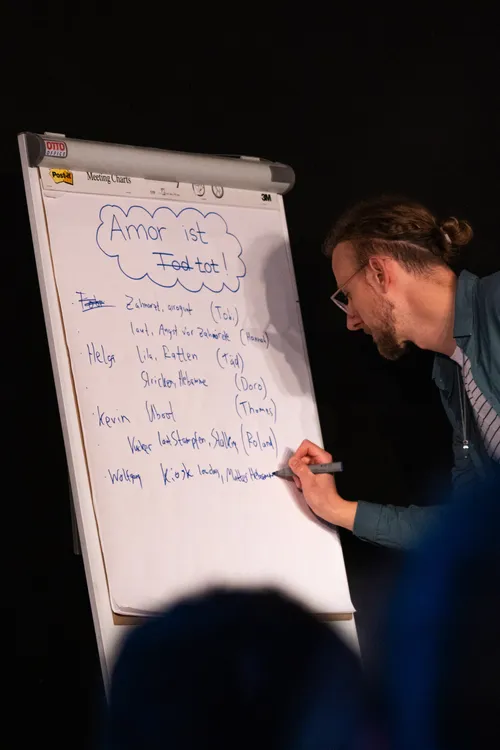 OTTO
OFFICE
Post-it
Meeting Charts
3M
Amor ist
Tod tot!
Zahnarzt, arrogant (Tobi)
laut, Angst vor Zahnärzte (Hannah)
Helga Lila, Ratten (Tad)
Stricken, Hebamme (Doro)
Kevin Uboot (Thomas)
laut Stampfen, Stalken (Roland)
Wolfgang Kiosk